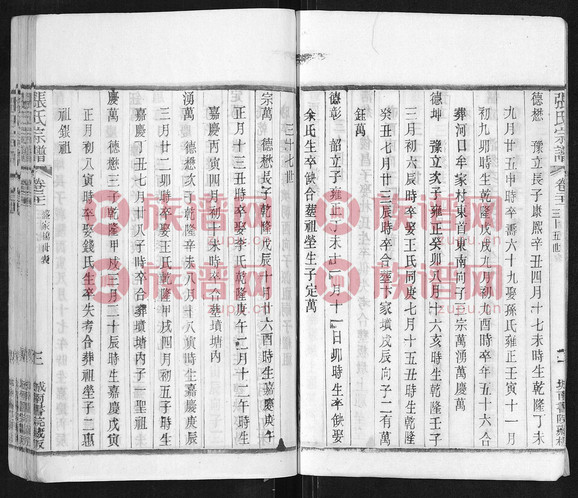 張氏宗譜
卷三
德懋 豫立長子康熙辛丑四月十七未時生乾隆丁未
九月廿五申時卒壽六十九娶孫氏雍正壬寅十一月
初九卯時生乾隆戊戌九月初九酉時卒年五十六合
葬河日牟家村東首東南向子三宗萬湧萬慶萬
德坤 豫立次子雍正癸卯八月十六亥時生乾隆壬子
三月初六辰時卒娶王氏同庚七月十五丑時生乾隆
月廿三辰時卒合葬卞家墳戌辰向子二有萬
鈺萬
德彰 韶立子雍正丁未十一月十一日卯時生卒缺娶
余氏生卒缺合葬祖塋生子定萬
三十七世
宗萬 德懋長子乾隆戊辰十月廿六酉時生嘉慶庚午
正月十三丑時卒娶李氏乾隆庚午二月十二午時生
嘉慶丙寅四月初十未時卒合葬墳塘內
湧萬 德懋次子乾隆辛未八月十八寅時生嘉慶庚辰
三月廿二卯時卒娶王氏乾隆甲戌四月初五子時生
嘉慶丁丑七月廿八子時卒合葬墳塘內子一聖祖
慶萬 德懋三子乾隆甲戌三月二十辰時生嘉慶戊寅
正月初八寅時卒娶錢氏生卒失考合葬祖塋子二惠
祖銀祖
張氏宗譜
卷三
族譜网
zupu.cn